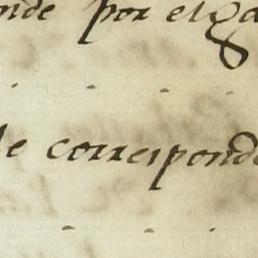 nde por el ga
le corresponde